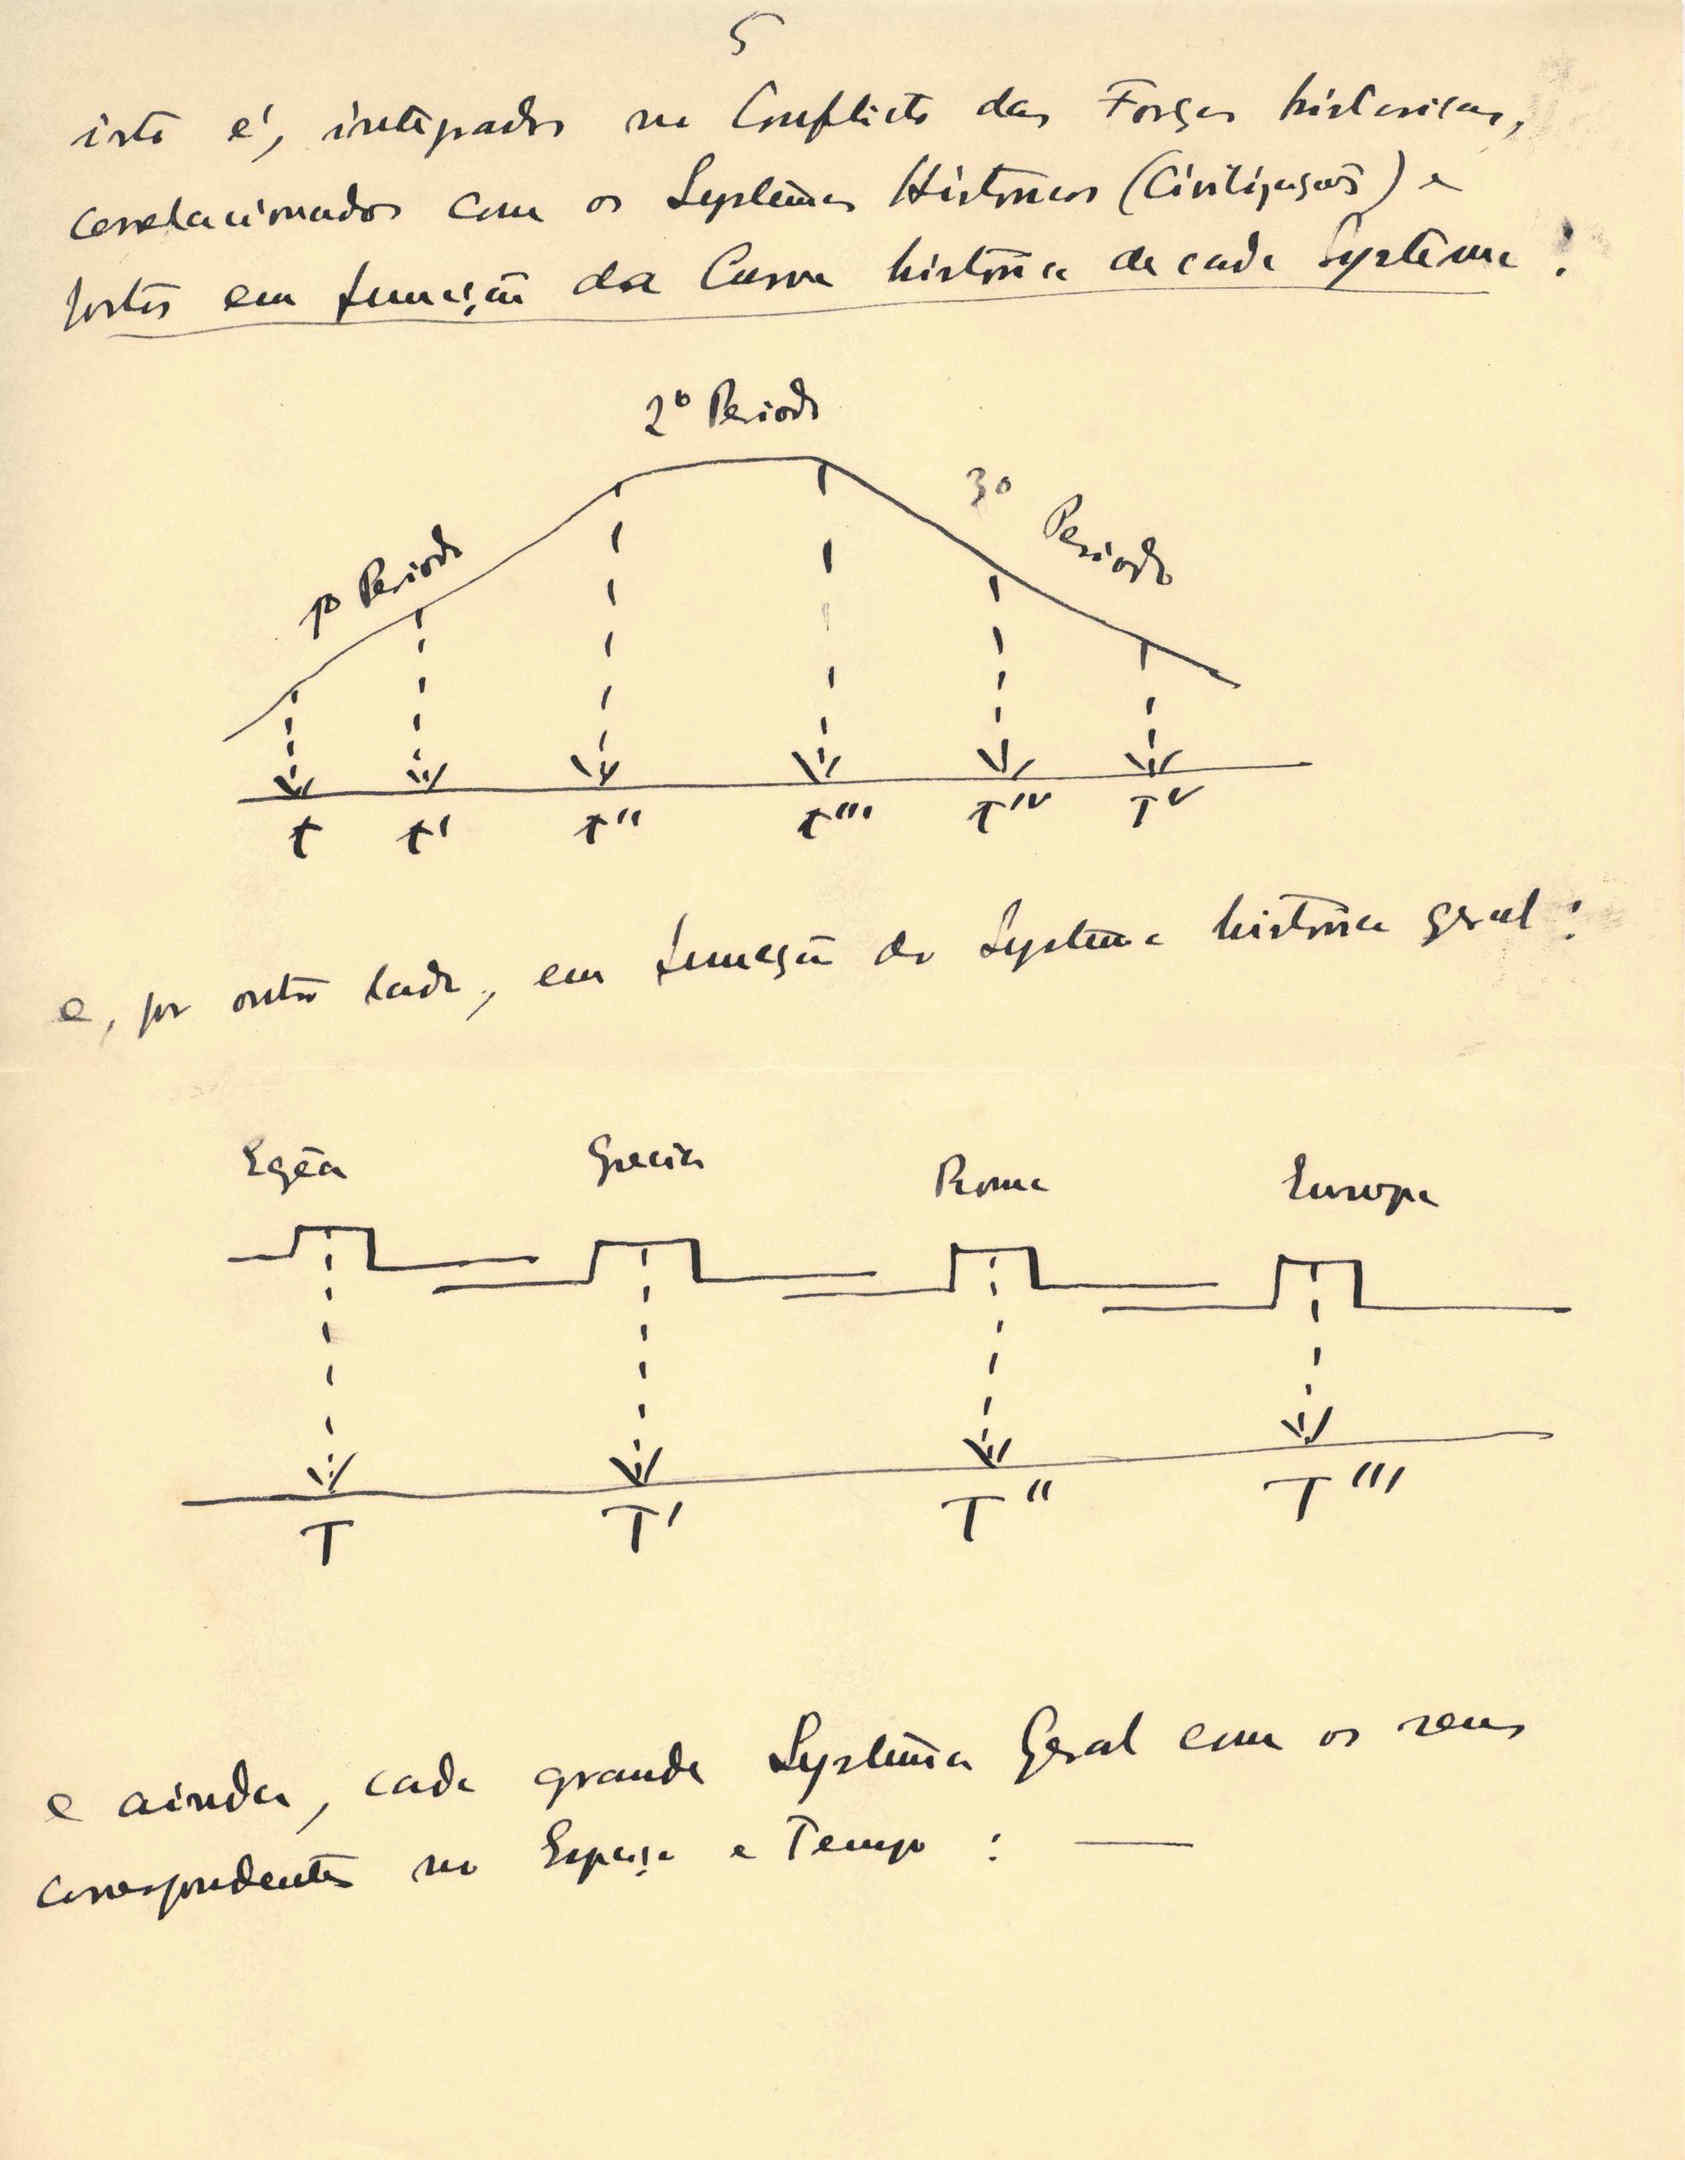 5
isto é, integrados no Conflicto das Forças historicas,
correlacionados com os Systemas Historicos (Civilizações) e
postos em funcção da Curva historica de cada Systema:
2º Periodo
3º Periodo
1º Periodo
t t' t'' t''' t'^v T^v
e, por outro lado, em funcção do Systema historico geral:
Egéa Grecia Roma Europa
T T' T'' T'''
e ainda, cada grande Systema Geral com os seus
correspondentes no Espaço e Tempo : —